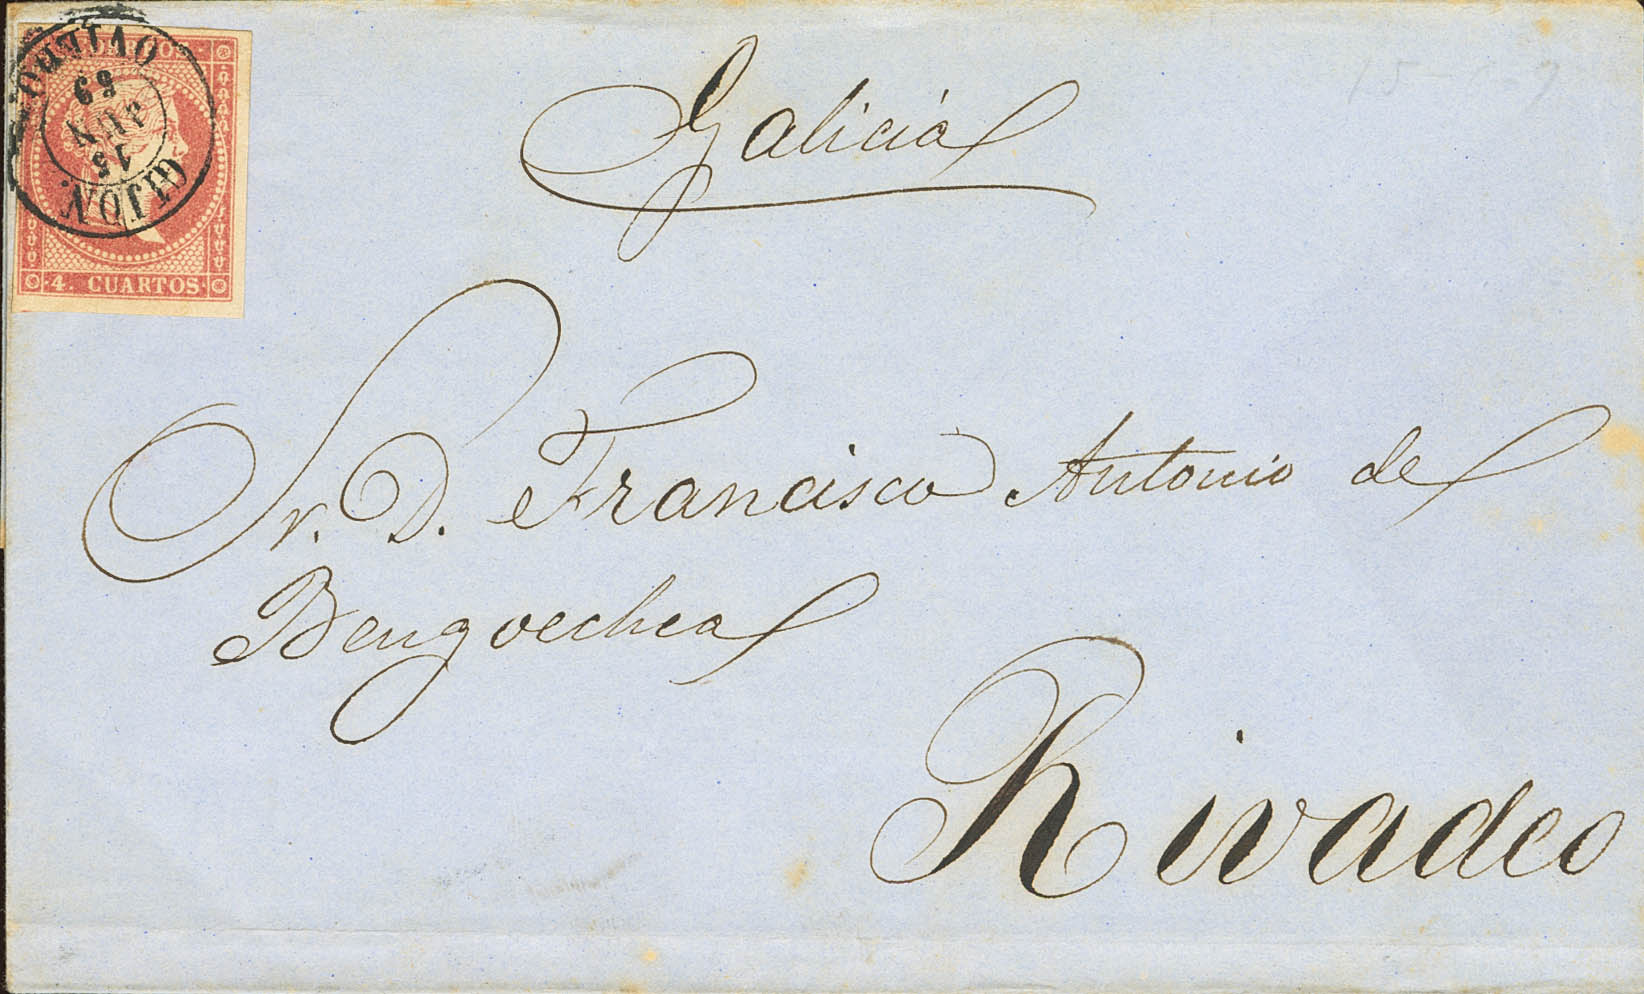 GIJON.
15
JUN
59
OVIEDO
4. CUARTOS
Galicia
Sr. D. Francisco Antonio de
Bengoechea
Rivadeo